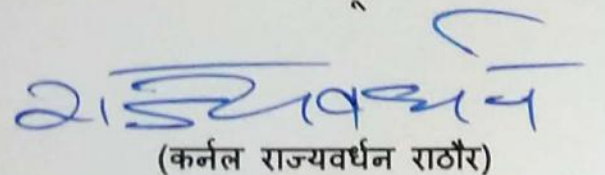 राज्यवर्धन
(कर्नल राज्यवर्धन राठौर)